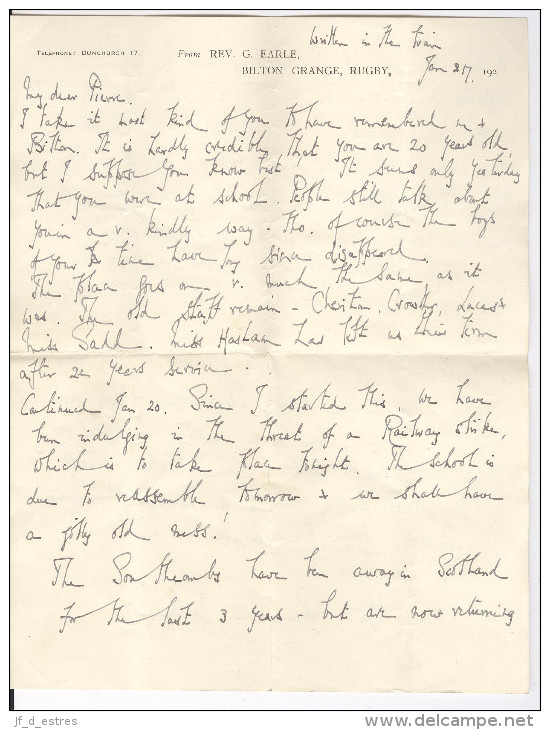 written in the train
TELEPHONE: DUNCHURCH 17.
From REV. G. EARLE,
BILTON GRANGE, RUGBY,
Jan 17. 192
My dear Pierre.
I take it most kind of you to have remembered me &
Bilton. It is hardly credible that you are 20 years old
but I suppose you know best. It seems only yesterday
that you were at school. People still talk about
you in a v. kindly way - tho. of course the boys
of your time have long since disappeared.
The place goes on v. much the same, as it
was. The old staff remain - Cheriton, Crowther, Lucas &
Miss Sadd. Miss Hasham has left us this term
after 22 years service.
Continued Jan 20. Since I started this, we have
been indulging in the threat of a Railway strike,
which is to take place tonight. The school is
due to reassemble tomorrow & we shall have
a jolly old mess!
The Southcombs have been away in Scotland
for the last 3 years - but are now returning
jf_d_estres
www.delcampe.net